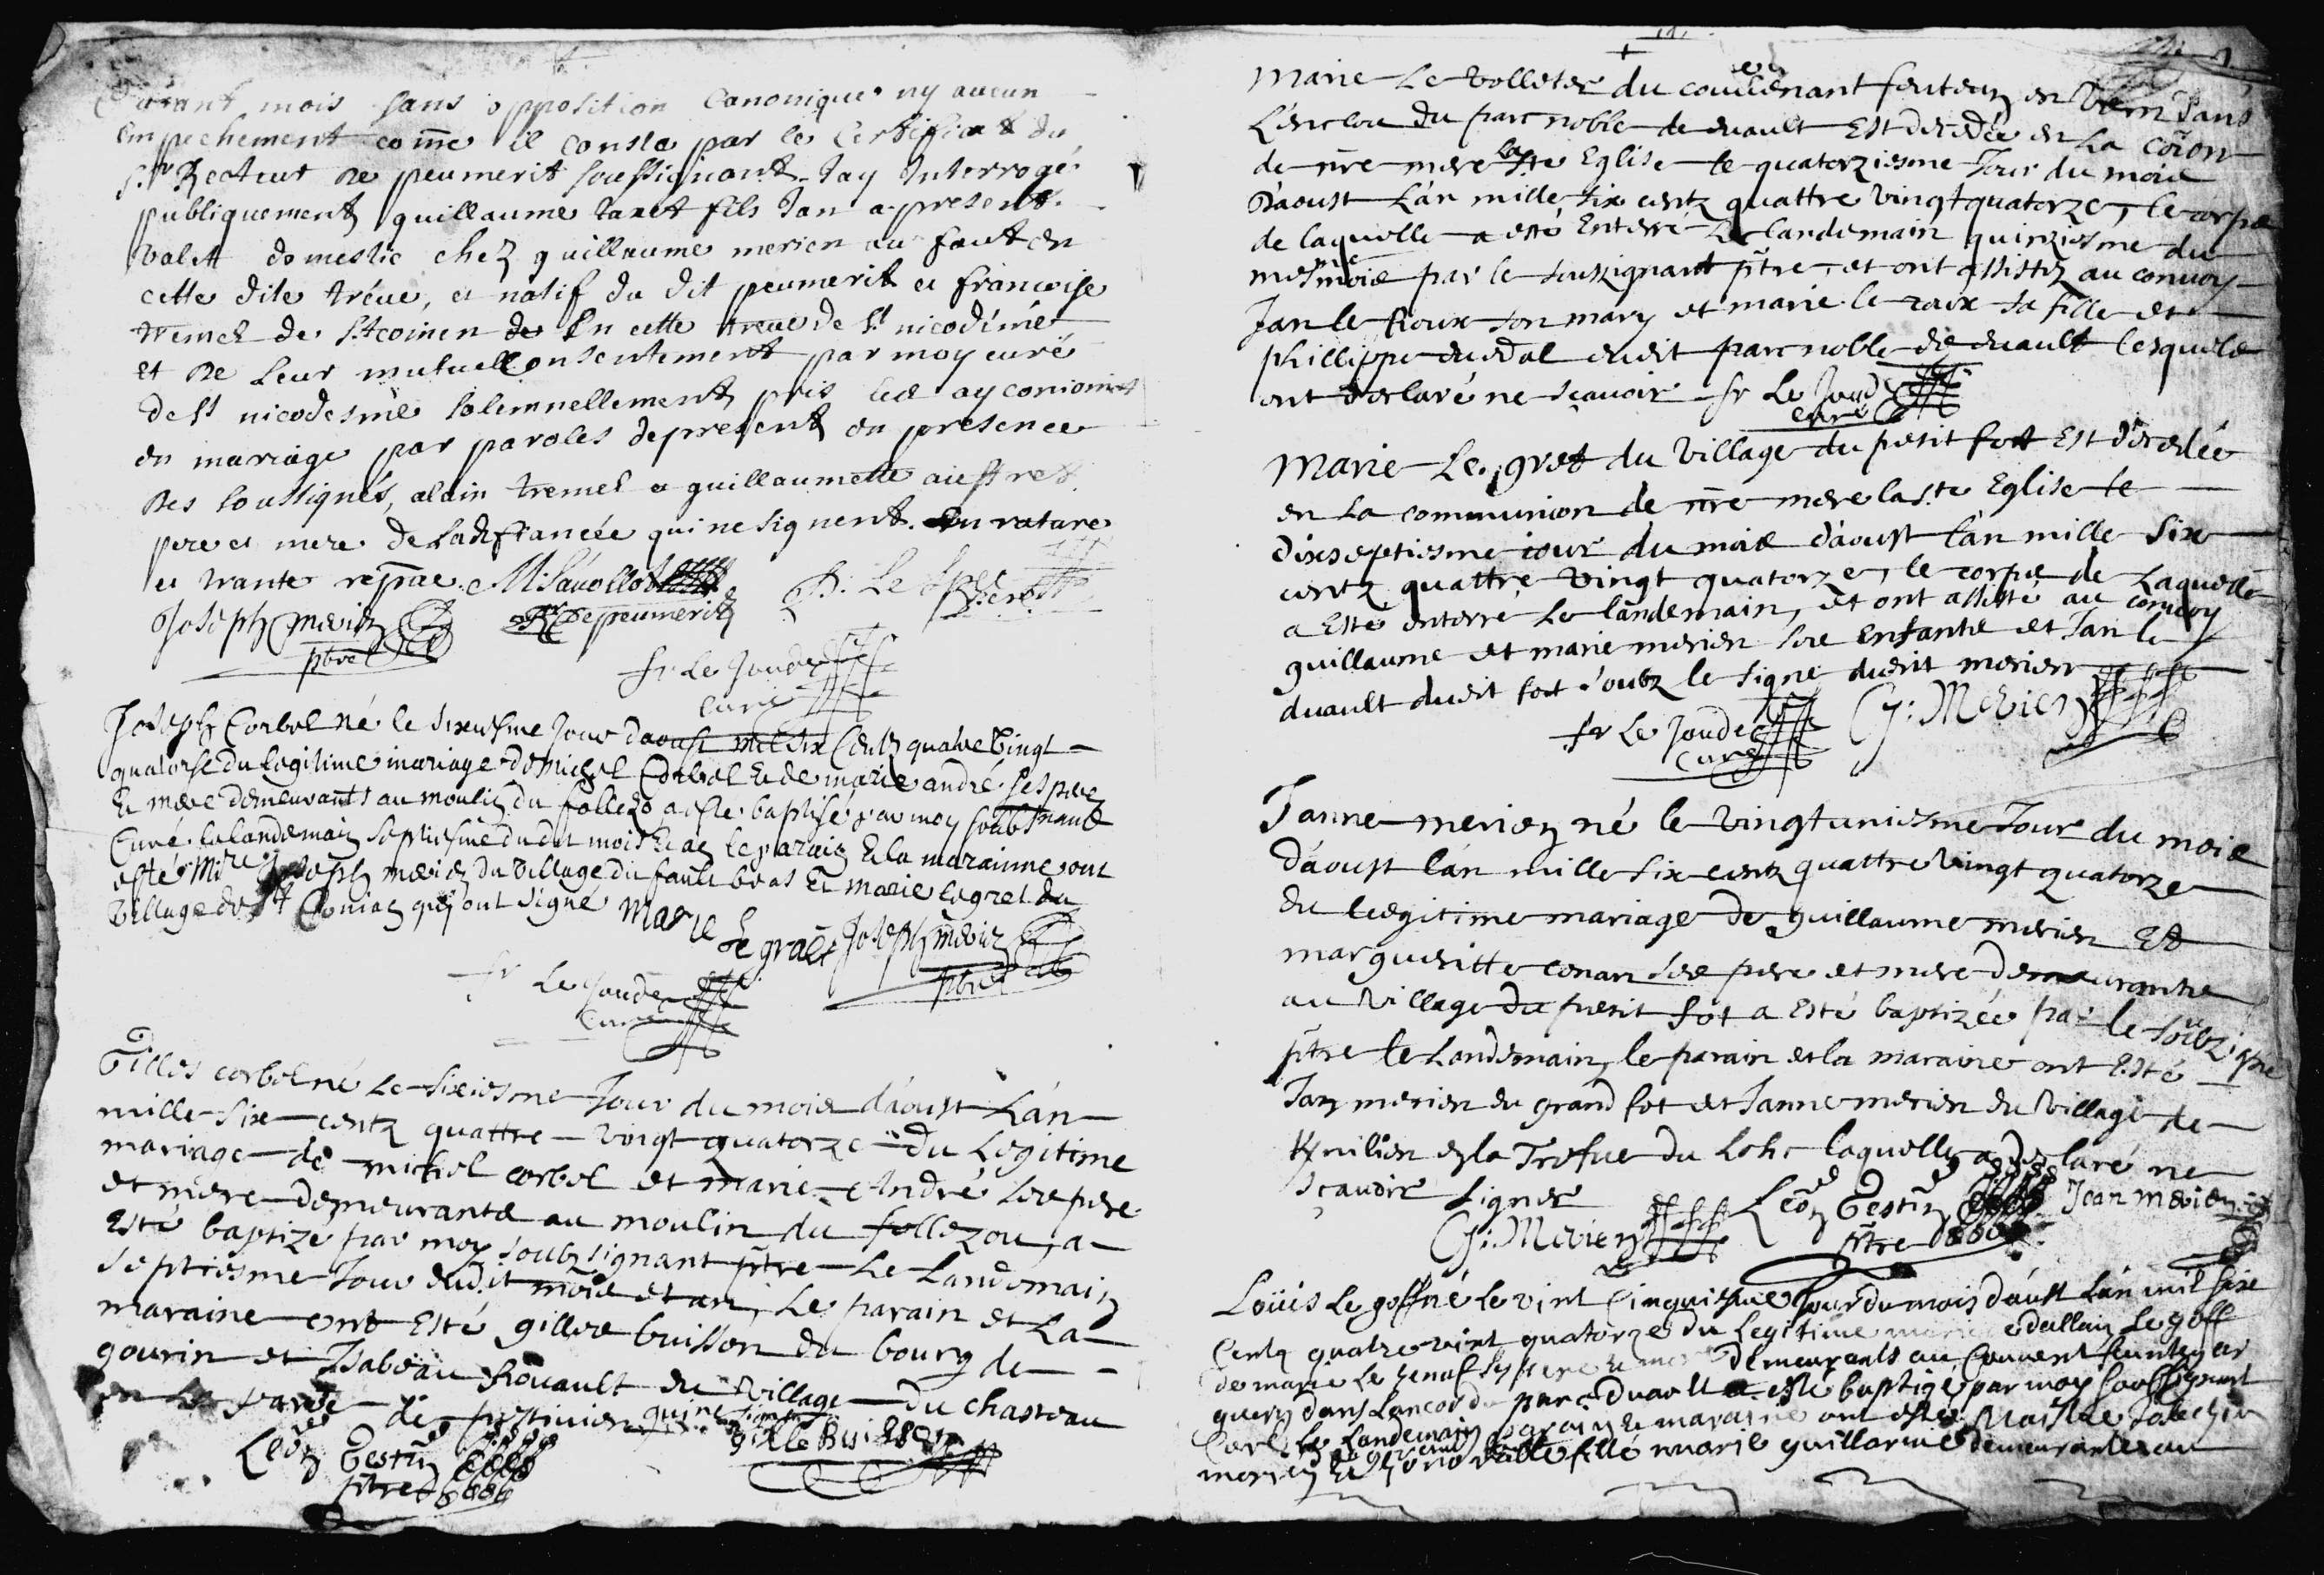 mois sans opposition Canonique ny aucun
Empechement comme il conste par le Certificat du
Sr Recteur de peumerit soussignant Jay Interrogé
publiquement guillaume taxet fils Jan a present
valet domestic chez guillaume merien au faut en
cette dite tréue, et natif du dit peumerit et francoise
tremel de St coinen de En cette treue de St nicodéme
et de Leur mutuel Consentement par moy curé
de St nicodesme solemnellement pris les ay conioincts
en mariage par paroles de present en presence
des soussignés, alain tremel et guillaumette
pere et mere de Ladite fiancée qui ne signent. En rature
et trante
Joseph merien
pbre
Rr De peumerit
fr Le Joudec
Curé
Joseph Corbel né le sixiesme Jour daoust mil six Centz quatre Vingt
quatorse du legitime mariage de michel Corbel et de marie andré ses pere
et mere demeurants au moulin du follezo a esté baptisé par moy
Curé le landemain septiesme du dit mois et an le parain et la marainne ont
esté Mire Joseph merien du village du fault bras et marie legret du
village de St Conian qui ont signé Marie
Le graet Joseph merien
pbre
fr Le Joudec
Curé
Gilles corbel né Le sixiesme Jour du mois d'aoust L'an
mille six centz quattre vingt quatorze du Legitime
mariage de michel corbel et marie André ses pere
et mere demeurants au moulin du follezou, a
Esté baptizé par moy soubzsignant ptre Le Landemain
septiesme Jour dudit mois et an, Le parain et La
maraine ont Esté gilles buisson du bourg de
gourin et Isabeau Rouault du village du chasteau
en La de qui ne signe
Leon Testu
ptre
Marie Le volleter du couvenant feuteun en dans
L'enclos du parc noble de duault Est décédée en La coïon
de nre mere la Ste Eglise le quatorziesme Jour du mois
D'aoust L'an mille six centz quattre vingt quatorze, le corps
de laquelle a esté Enterré Le landemain quinziesme du
mesme mois par le soubzignant ptre, et ont assistez au convoy
Jan le Roux son mary et marie le roux sa fille et
phillippe dudit parc noble de duault lesquels
ont declaré ne scauoir fr Le Joudec
Curé
Marie Le gret du village du petit fot Est décédée
en La communion de nre mere la ste Eglise le
dixseptiesme iour du mois d'aoust l'an mille six
centz quattre vingt quatorze, le corps de Laquelle
a Esté enterré Le landemain, et ont assisté au convoy
guillaume et marie merien ses Enfants et Jan le
duault dudit fot soubz le signe dudit merien
fr Le Joudec G: Merien
Curé
Janne merien né le vingtuniesme Jour du mois
d'aoust l'an mille six centz quattre vingt quatorze
du leegitime mariage de guillaume merien Et
margueritte conan ses pere et mere demeurants
au village du petit fot a Esté baptizée par le soubzigné
ptre le Landemain, le parain et la maraine ont Esté
Jan merien du grand fot et Janne merien du village de
en la Trefue du Lohc laquelle a declaré ne
sçauoir signer
G: Merien Leon Testu Jean merien
ptre
Loüis Le goff né le vint Cinquiesme Jour du mois d'aust L'an mil six
Centz quatre vint quatorze du Legitime mariage dallain Le goff
de marie Le ses pere et mere demeurants au Couvent
dans Lanclos du parc duault a esté baptizé par moy soussignant
Curé Le Landemain parain et maraine ont estés Maistre
merien et fille marie guillarme demeurantes au